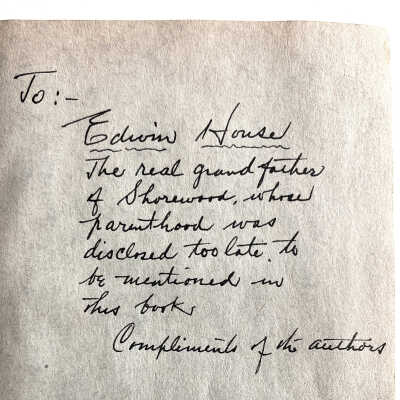 To:-
Edwin House
The real grandfather
of Shorewood, whose
parenthood was
disclosed too late, to
be mentioned in
this book.
Compliments of the authors